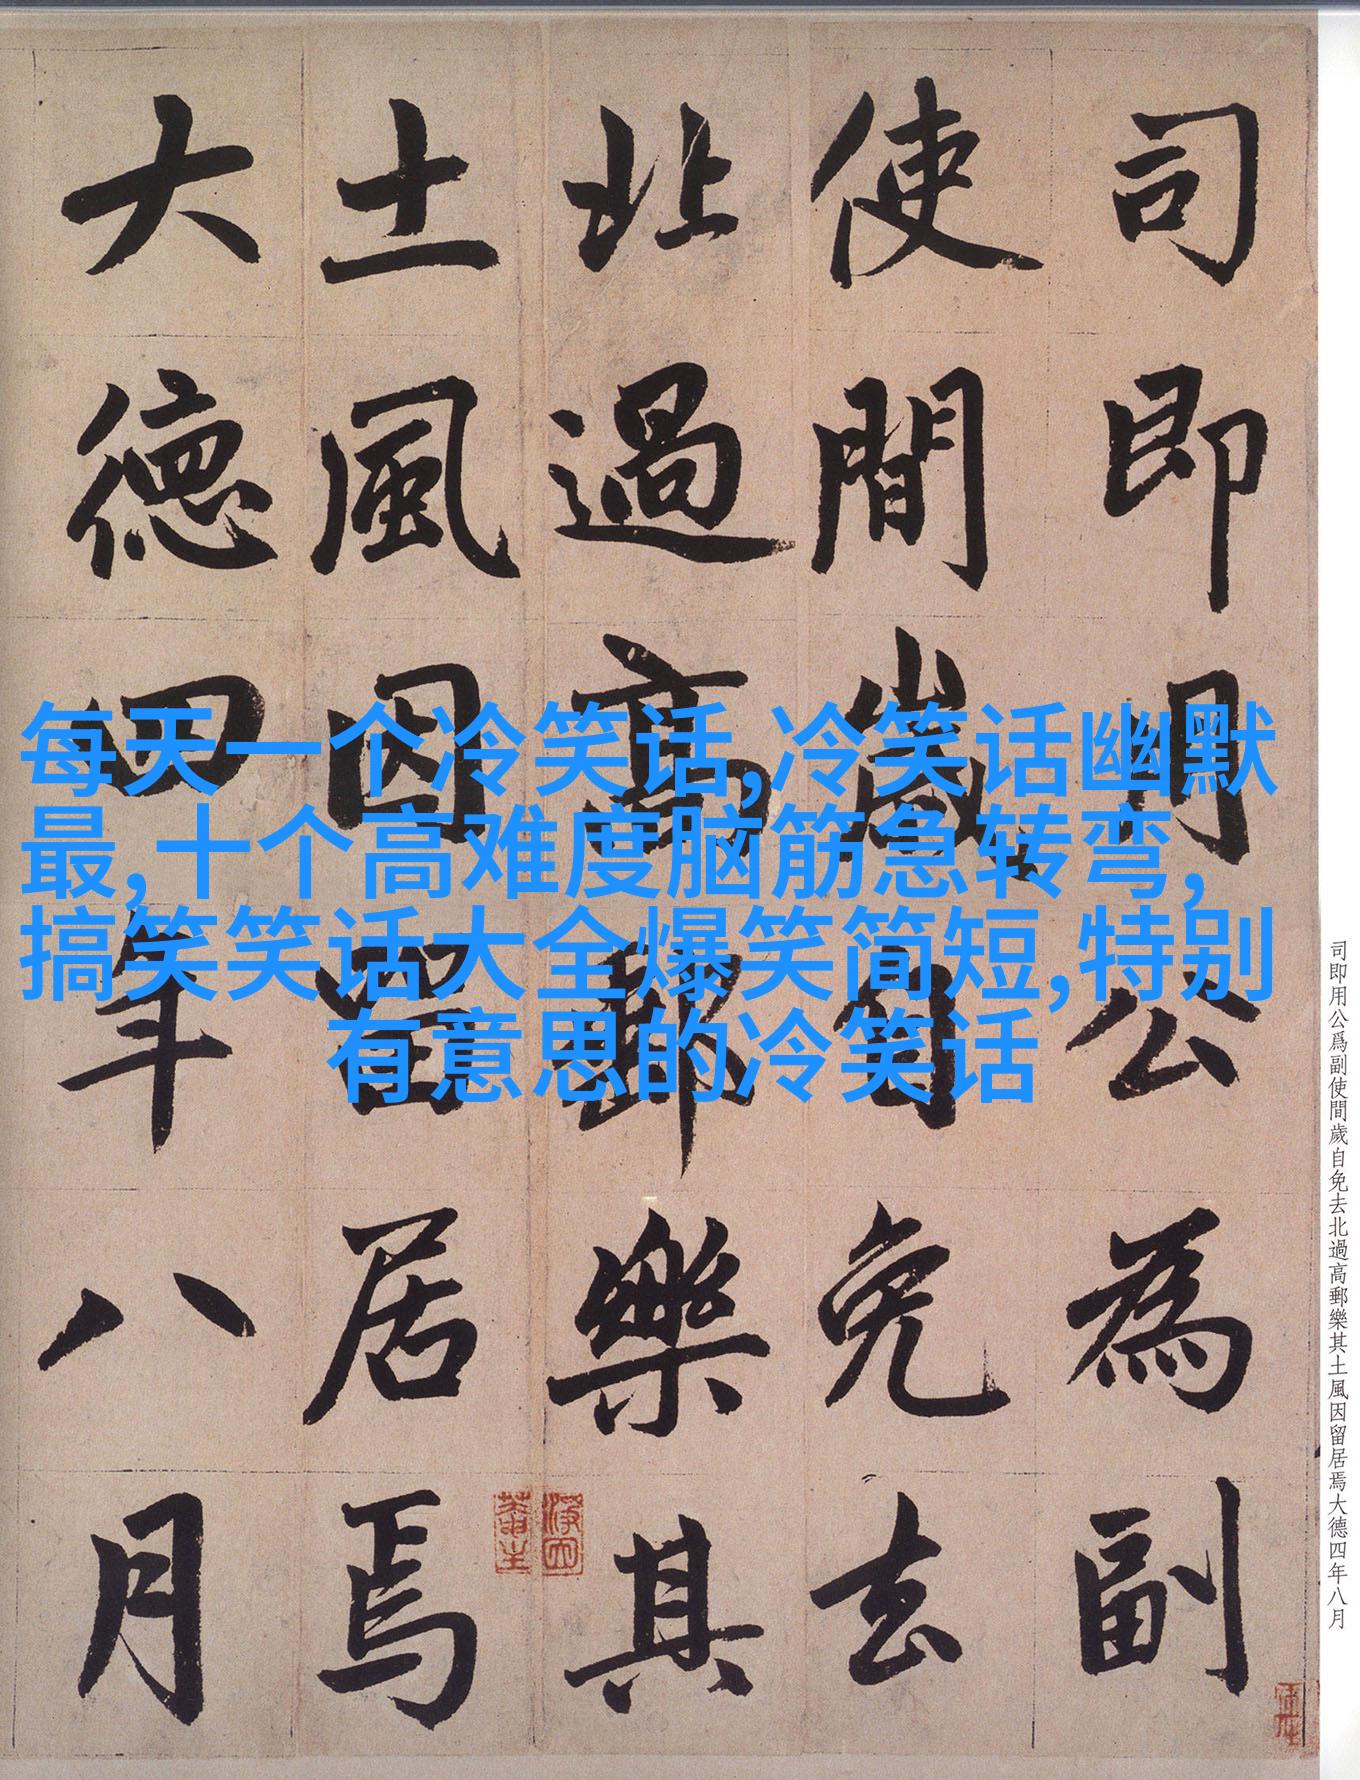 司即用公為副
使間歲自免去
北過高郵樂其
土風因留居焉
大德四年八月
每天一个冷笑话,冷笑话幽默
最,十个高难度脑筋急转弯,
搞笑笑话大全爆笑简短,特别
有意思的冷笑话
司即用公爲副使間歲自免去北過高郵樂其土風因留居焉大德四年八月